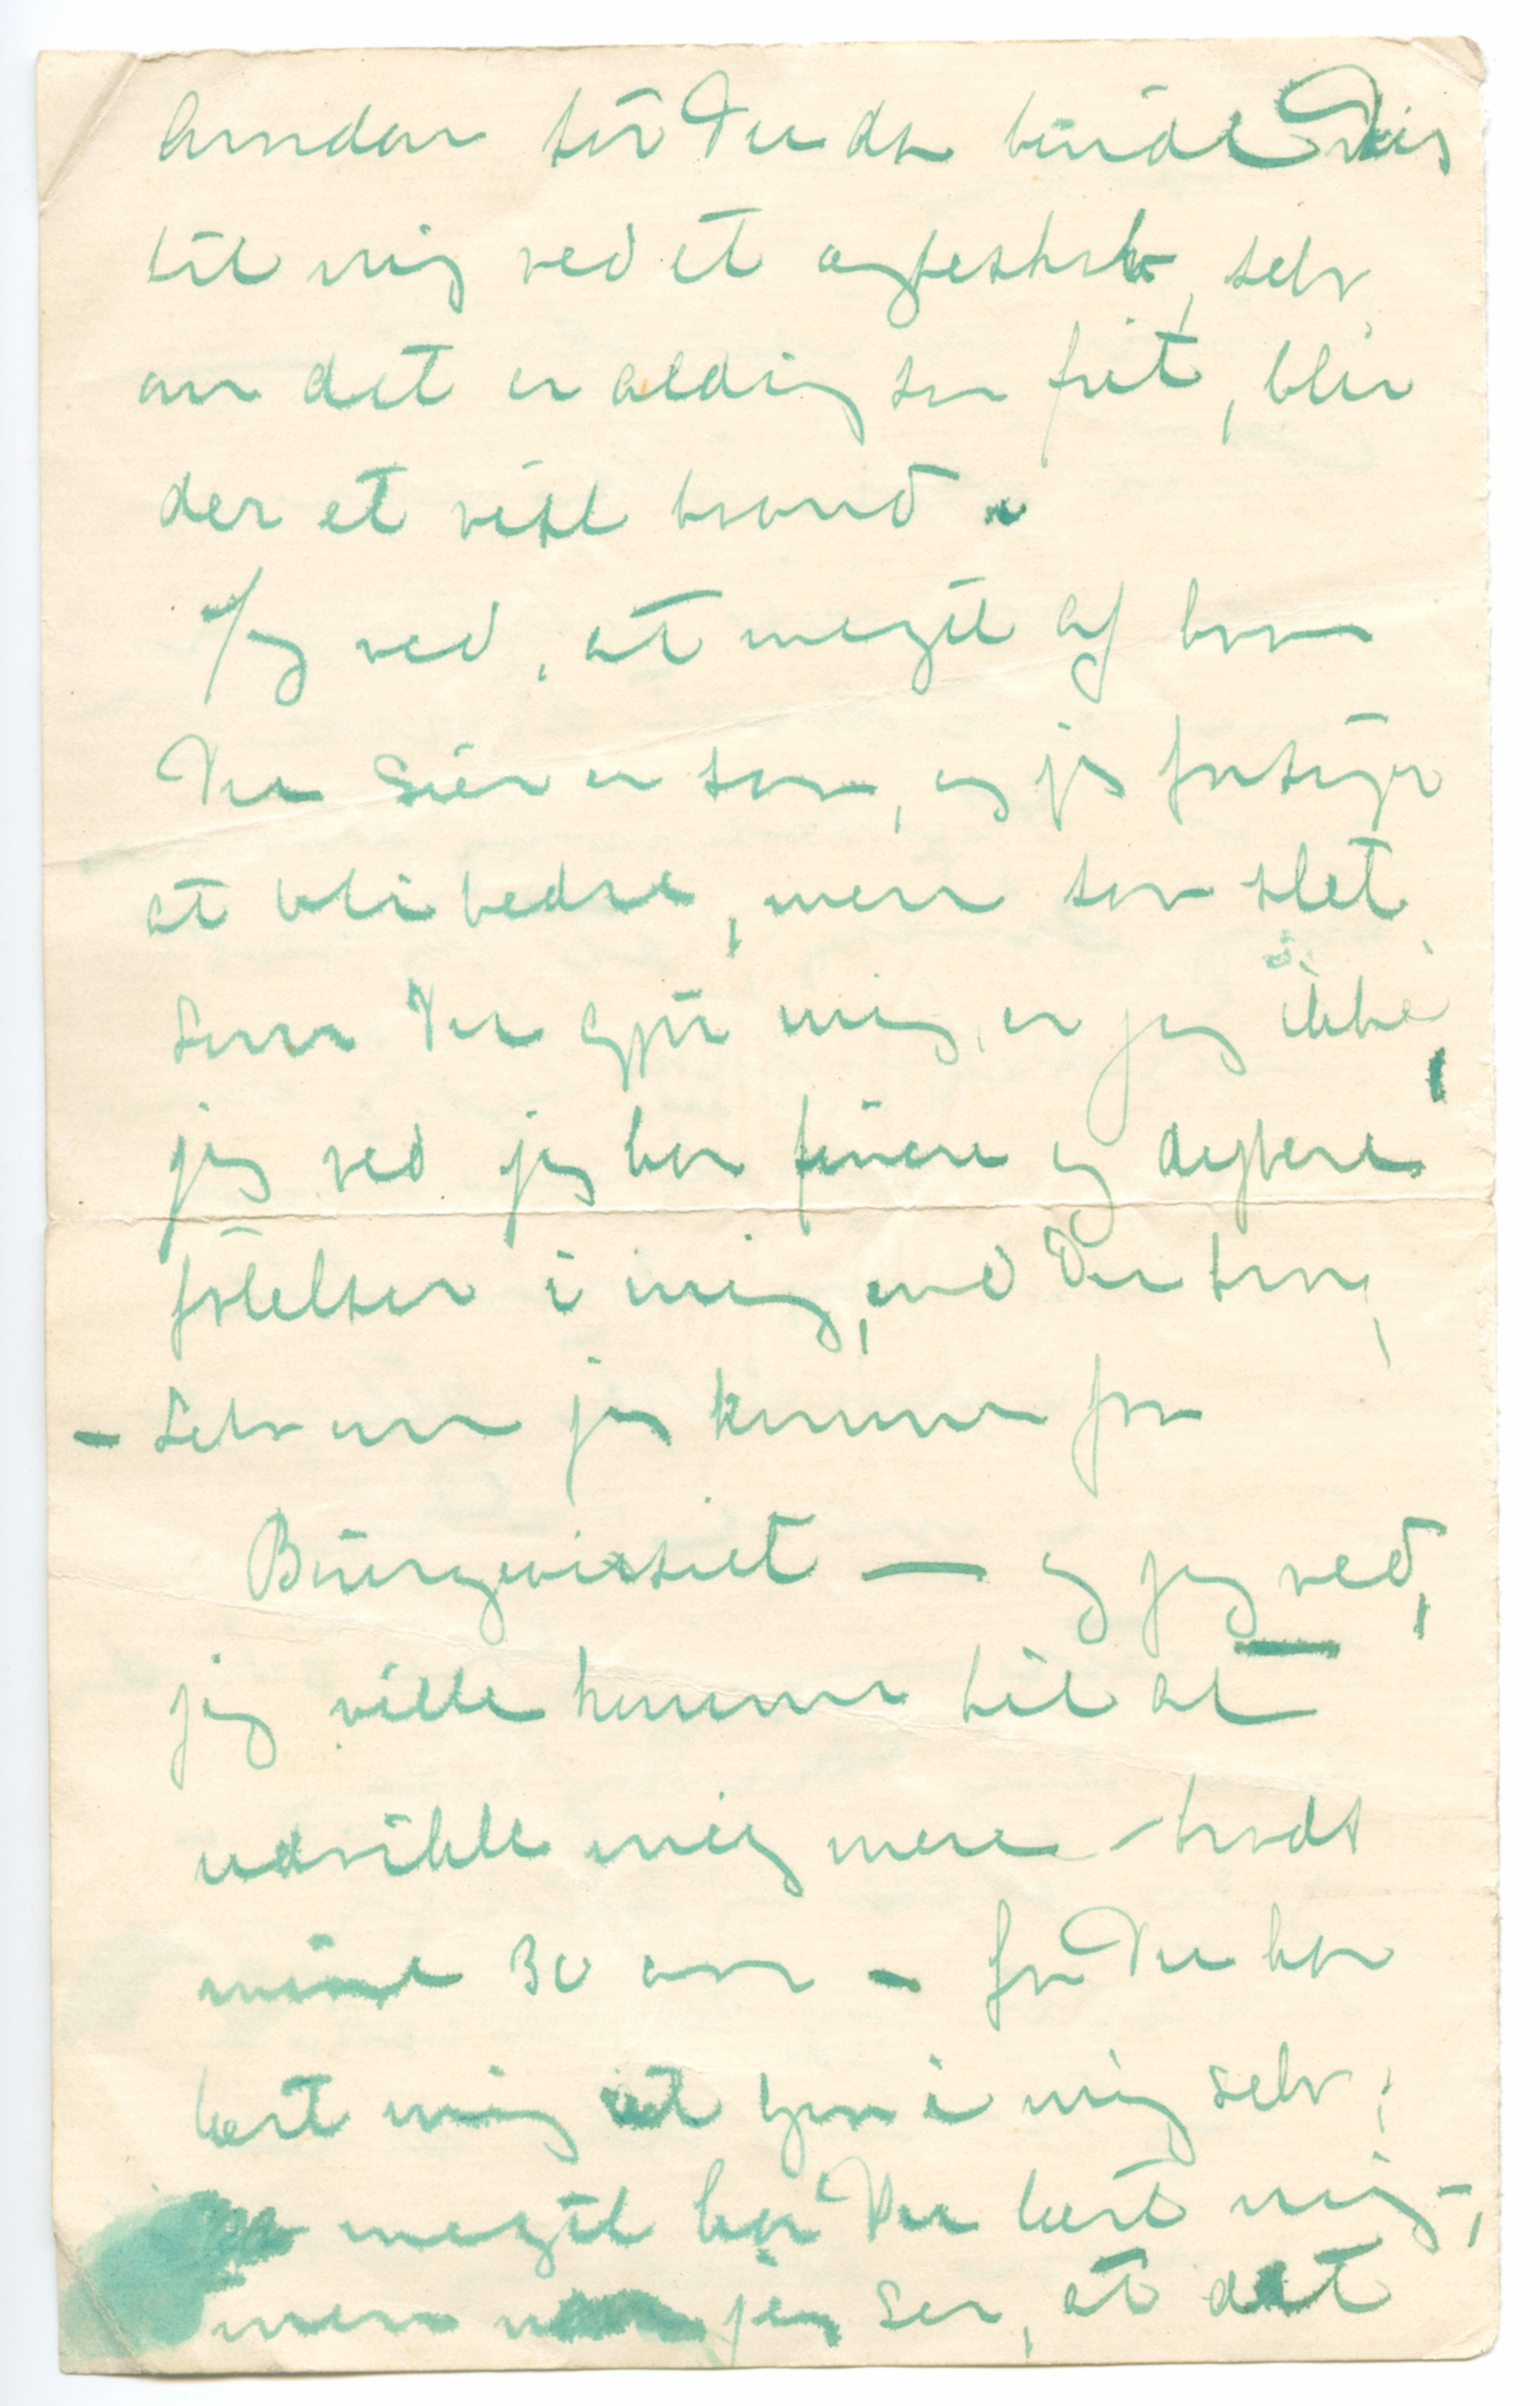 hvordan tör Du da binde Dig
til mig ved et ægteskab, selv
om det er aldrig saa frit, blir
der et vist baand.
Jeg ved, at meget af hvad
Du sier er sant, og jeg forsøger
at bli bedre, men saa slet
som Du gjør mig, er jeg ikke,
jeg ved jeg har finere og dybere
følelser i mig, end Du tror,
- selv om jeg kommer fra
Bourgeoisiet — og jeg ved,
jeg vilde komme til at
udvikle mig mere - trods
mine 30 aar - for Du har
lært mig at gaa i mig selv;
meget har Du lært mig -,
men naar jeg ser, at det